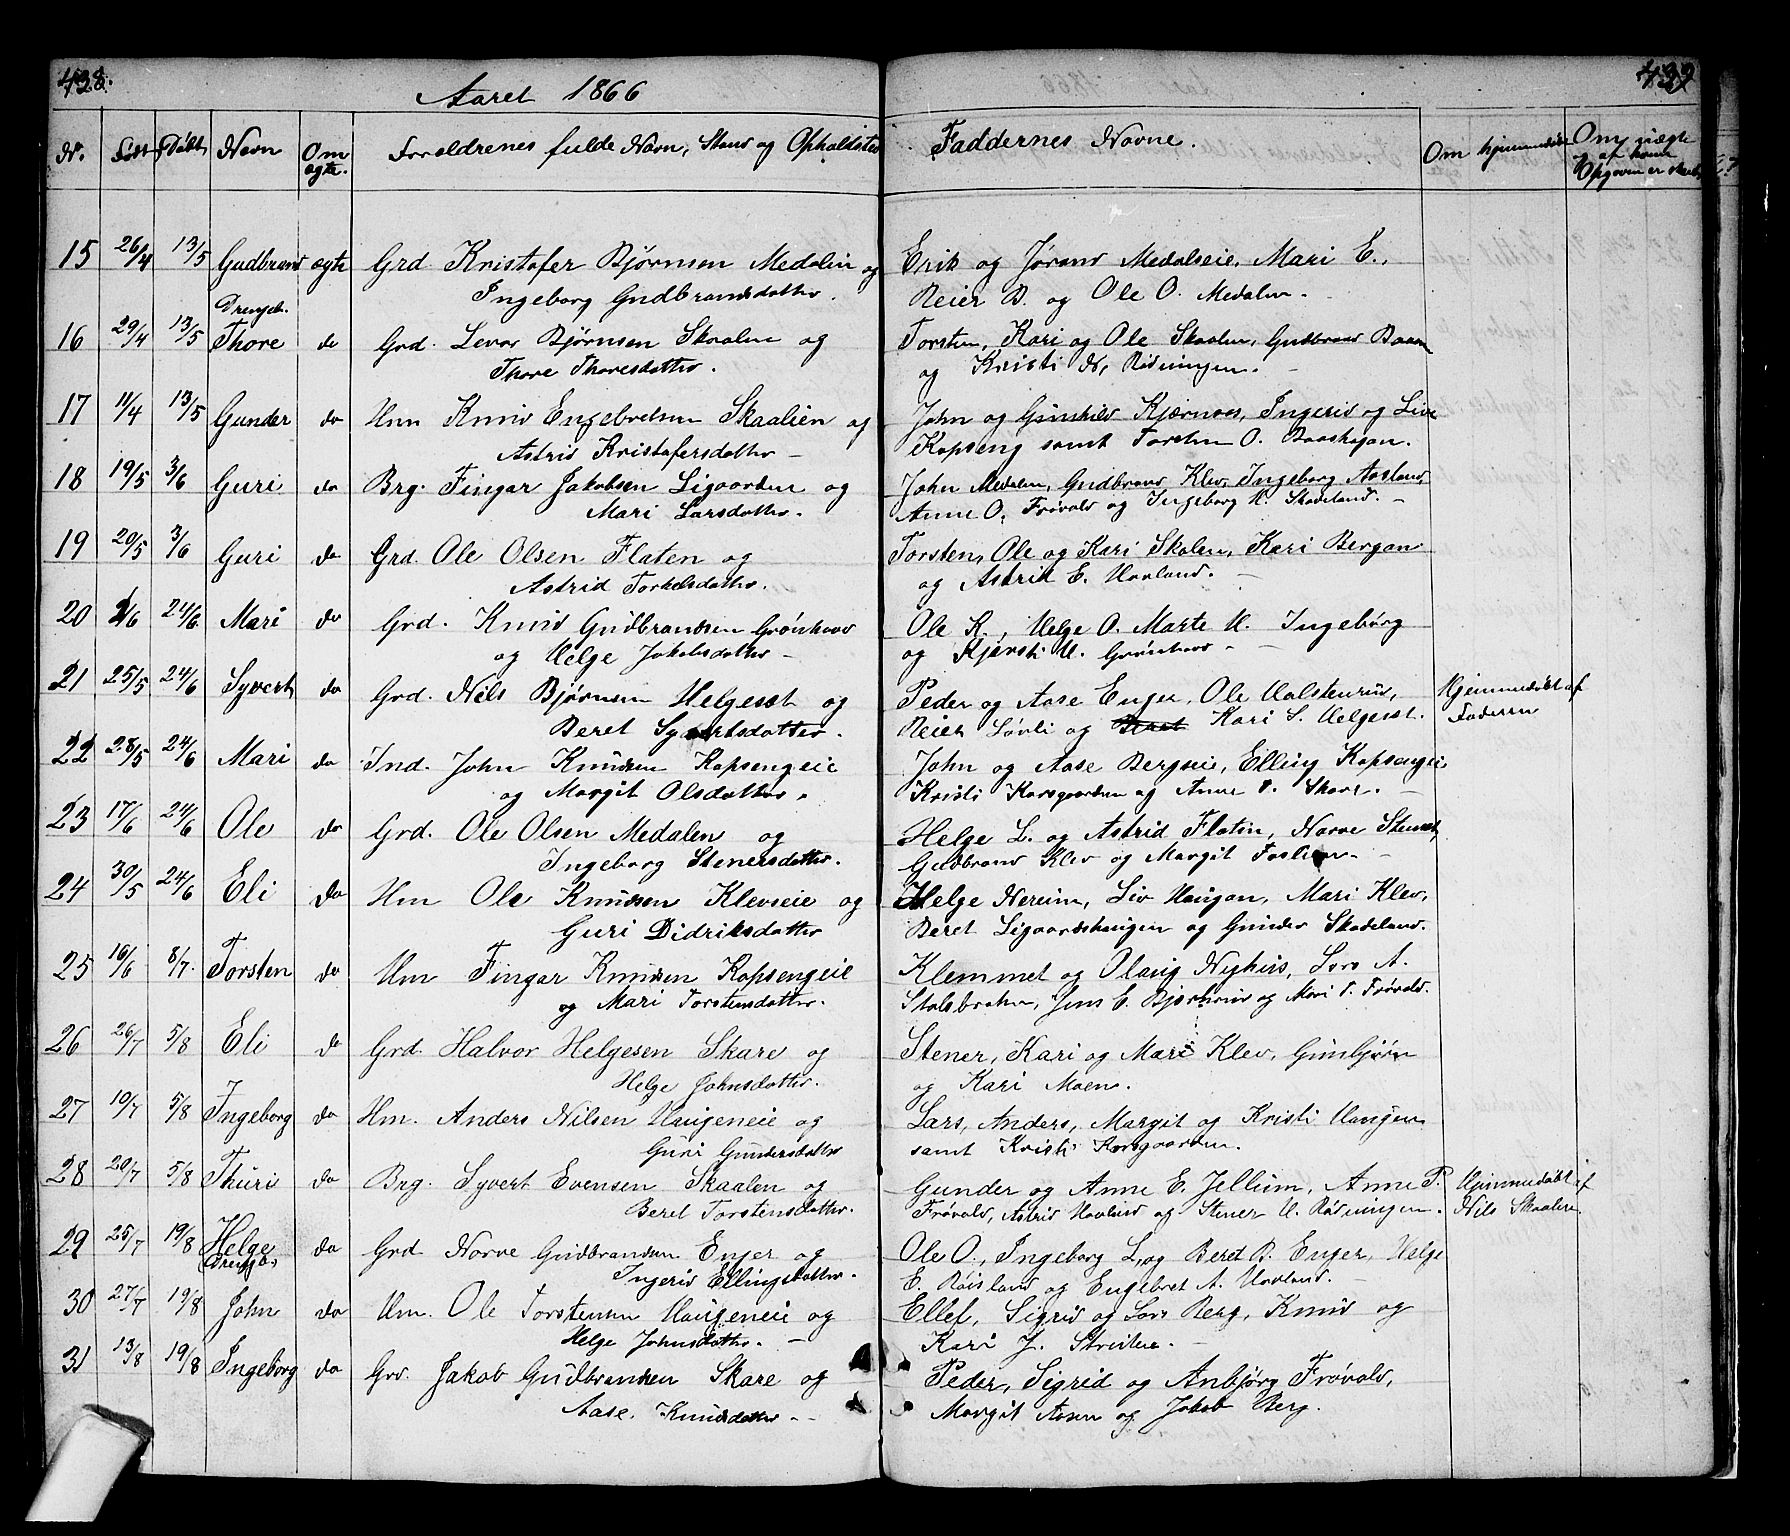 438.
Aaret 1866
439
Nr. Født Døbt Navn Om ægte. Forældrenes fulde Navn, Stand og Opholdsted Faddernes Navne. Om hjemmedøbt Om uægte
15 26/4 13/5 Gudbrand ægte Grd. Kristofer Bjørnsen Medalen og Erik og Jørand Medalseie, Mari E.,
Ingeborg Gudbrandsdatter. Reier B. og Ole O. Medalen.
Drengeb.
16 29/4 13/5 Thore do Grd. Levor Bjørnsen Skaalen og Torsten, Kari og Ole Skaalen, Gudbrand
Thore Thoresdatter. og Kristi N. Rødningen.
17 11/4 13/5 Gunder do Hm Knud Engebretsen Skaalien og John og Gunhild Kjærnaas, Ingerid og Live
Astrid Kristofersdatter Kopseng samt Torsten O. Baashagan.
18 19/5 3/6 Guri do Brg. Fingar Jakobsen Ligaarden og John Medalen, Gudbrand Klev, Ingeborg Aasland
Mari Larsdatter. Anne O. Frøvold og Ingeborg H. Skadeland.
19 20/5 3/6 Guri do Grd. Ole Olsen Flaten og Torsten, Ole og Kari Skalen, Kari Bergan
Astrid Torkelsdatter. og Astrid E. Hovland.
20 2/6 24/6 Mari do Grd. Knud Gudbrandsen Grønhovd Ole K., Helge O. Marte H. Ingebørg
og Helge Jakobsdatter og Kjersti H. Grønhovd
21 25/5 24/6 Syvert do Grd. Nils Bjørnsen Helgeset og Peder og Aase Enger, Ole Halstenrud, Hjemmedøbt af
Beret Syvertsdatter. Reier Løvli og Beret Kari S. Helgeset. Faderen
22 28/5 24/6 Mari do Ind. John Knudsen Kopsengeie John og Aase Bergseie, Elling Kopsengeie
og Margit Olsdatter. Kristi Korsgaarden og Anne T. Skare.
23 17/6 24/6 Ole do Grd. Ole Olsen Medalen og Helge L. og Astrid Flatin, Narve Stenset,
Ingeborg Stenersdatter. Gudbrand Klev og Margit
24 30/5 24/6 Eli do Hm Ole Knudsen Klevseie og Helge Nereim, Liv Haugan, Mari Klev,
Guri Didriksdatter Beret Ligaardshaugen og Gunder Skadeland.
25 16/6 8/7. Torsten do Hm Fingar Knudsen Kopsengeie Klemmet og Olaug Nyhus, Lars A.
og Mari Torstensdatter. Stolsbraaten, Jens E. Bjerkerud og Mari T. Frøvold.
26 26/7 5/8 Eli do Grd. Halvor Helgesen Skare og Stener, Kari og Mari Klev, Gunbjørn
Helge Johnsdatter. og Kari Moen.
27 19/7 5/8 Ingeborg do Hm. Anders Nilsen Haugeneie og Lars, Anders, Margit og Kristi Haugen
Guri Gundersdatter samt Kristi Korsgaarden.
28 20/7 5/8 Thuri do Brg. Syvert Evensen Skaalen og Gunder og Anne E. Jellum, Anne P. Hjemmedøbt af
Beret Torstensdatter. Frøvold, Astrid Hovland og Stener H. Rødningen. Nils Skaalen.
29 25/7 19/8 Helge do Grd Narve Gudbrandsen Enger og Ole O., Ingeborg L. og Beret B. Enger, Helge
(Drengeb.) Ingerid Ellingsdatter. E. Roisland og Engebret A. Hovland.
30 27/7 19/8 John do Hm. Ole Torstensen Haugeneie og Ellef, Sigrid og Lars Berg, Knud og
Helge Johnsdatter. Kari J. Streiten.
31 13/8 19/8 Ingeborg do Grd. Jakob Gudbrandsen Skare og Peder, Sigrid og Anbjørg Frøvold,
Aase Knudsdatter Margit Aasen og Jakob Berg.